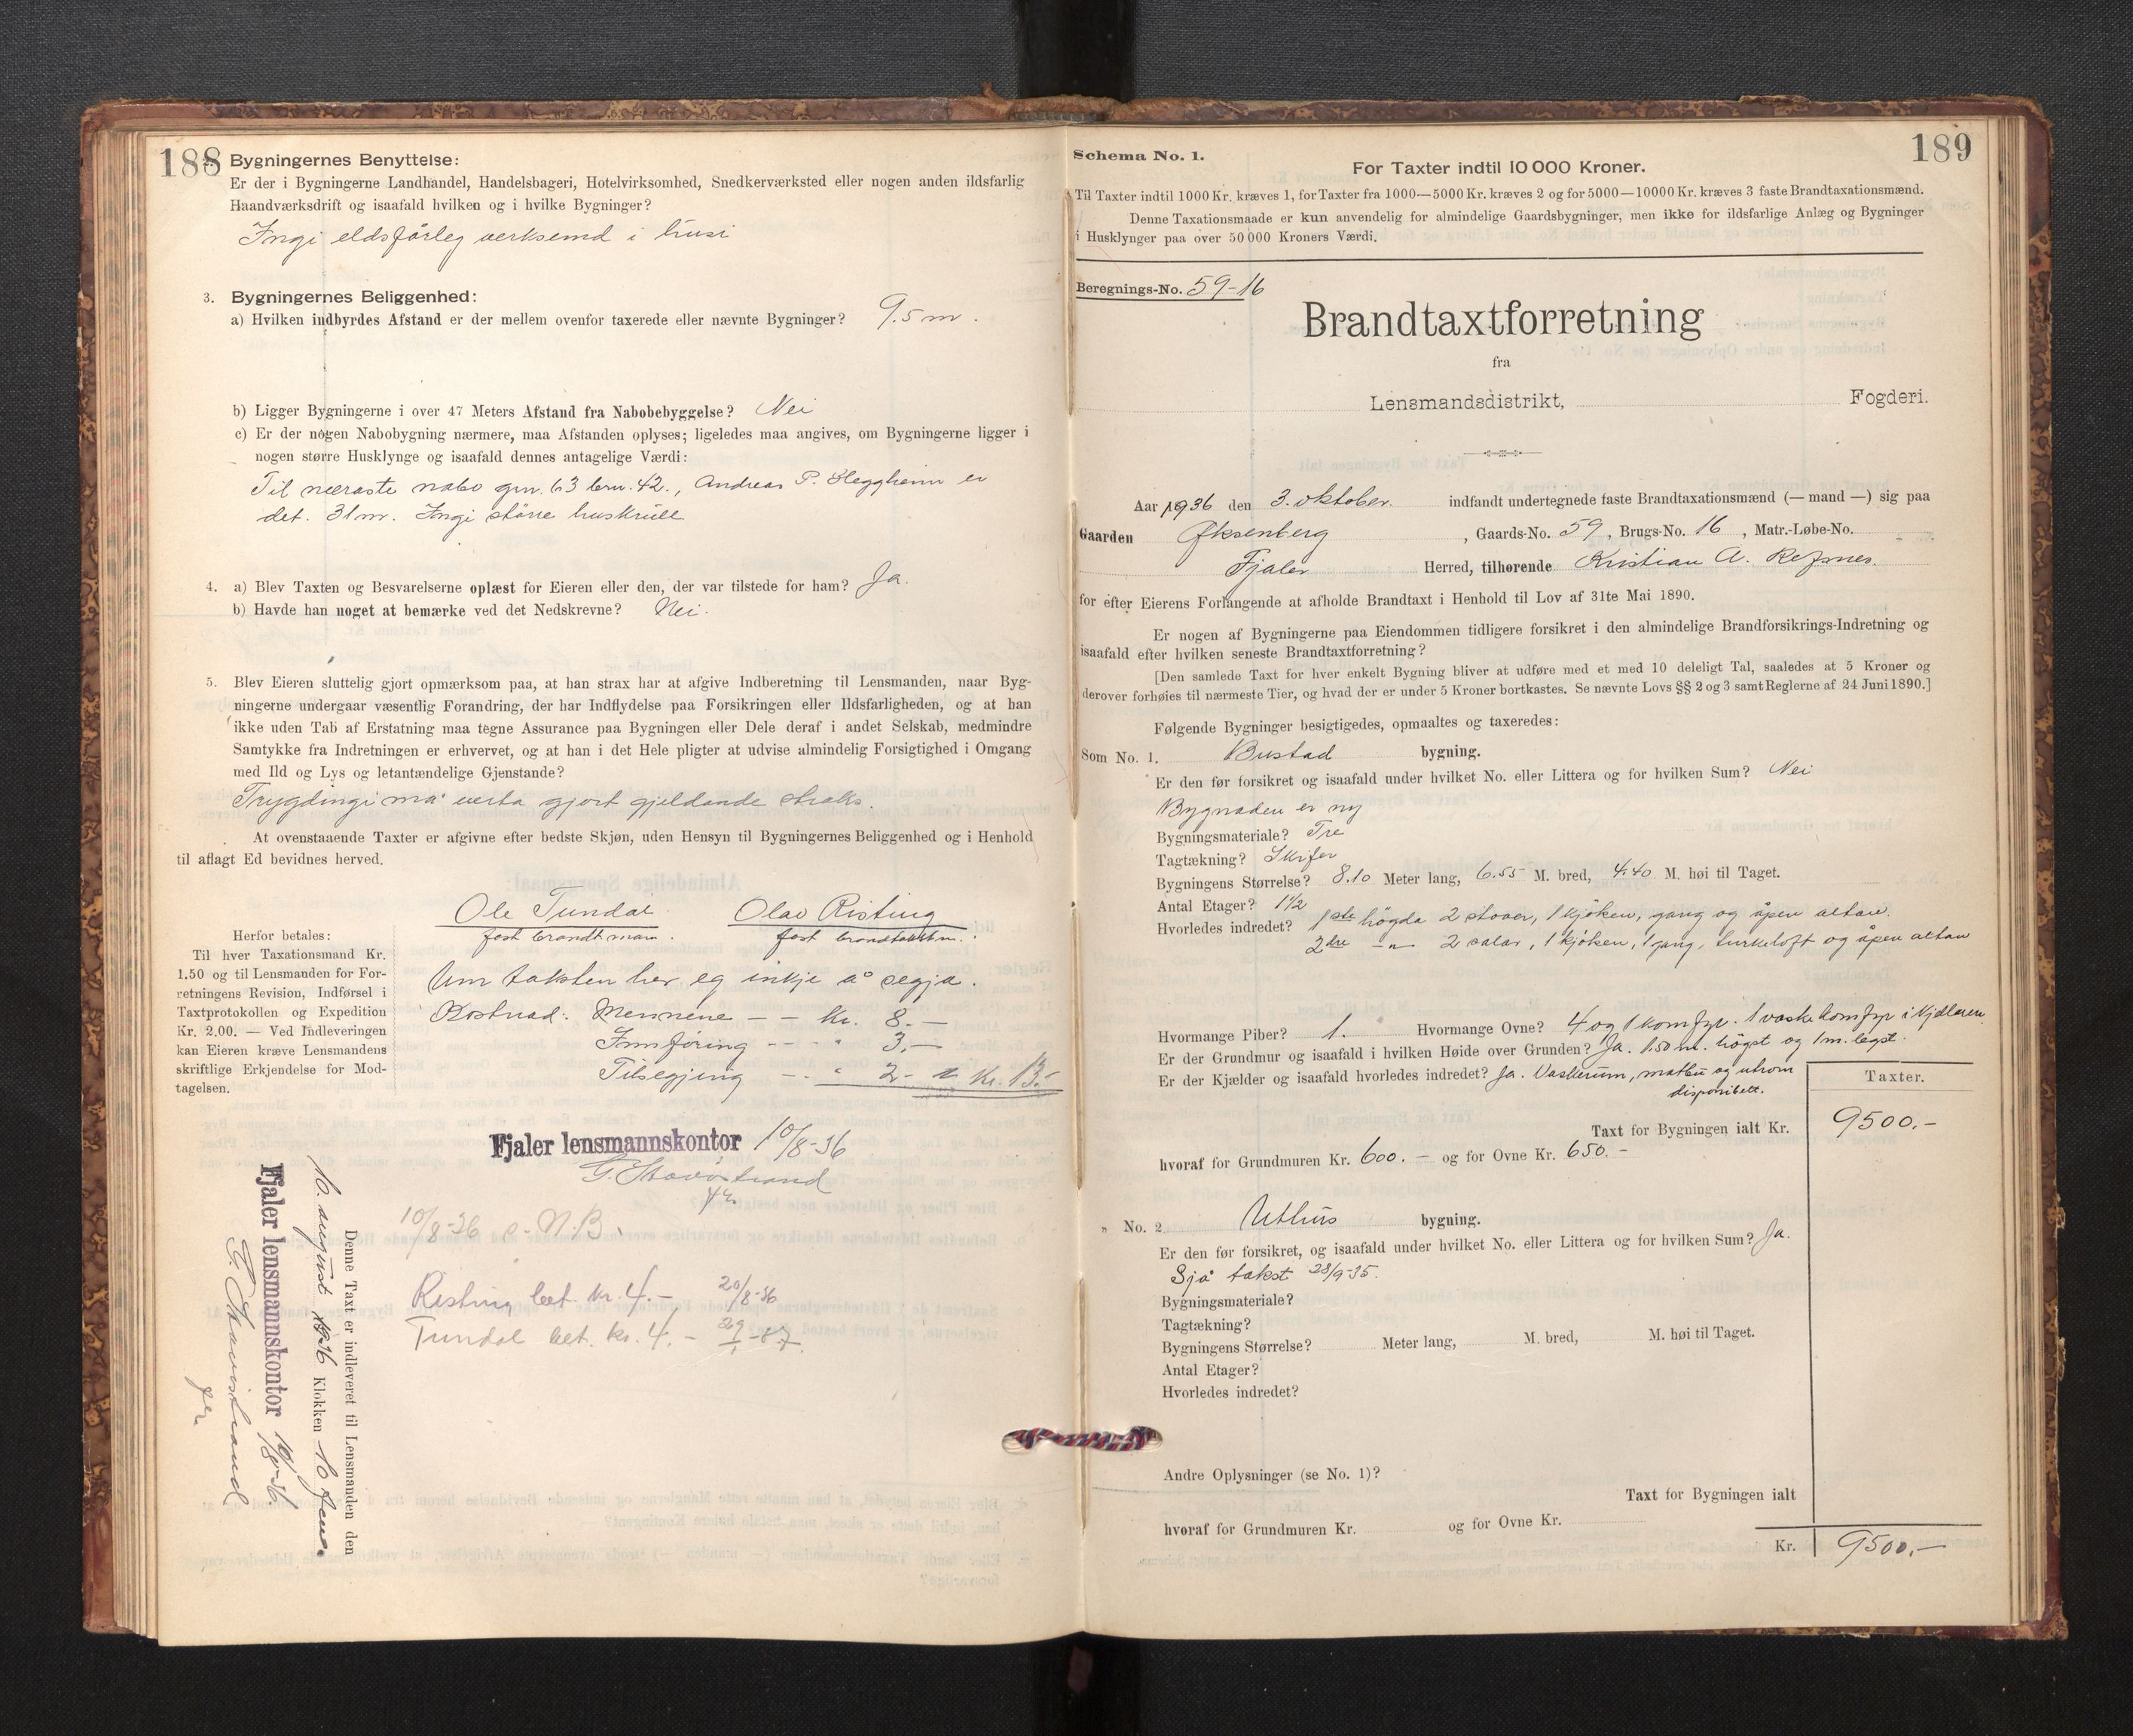 188
2. Bygningernes Benyttelse:
Er der i Bygningerne Landhandel, Handelsbageri, Hotelvirksomhed, Snedkerværksted eller nogen anden ildsfarlig
Haandværksdrift og isaafald hvilken og i hvilke Bygninger?
Ingi eldsfårleg verksemd i husi
3. Bygningernes Beliggenhed:
a) Hvilken indbyrdes Afstand er der mellem ovenfor taxerede eller nævnte Bygninger? 9.5 m.
b) Ligger Bygningerne i over 47 Meters Afstand fra Nabobebyggelse? Nei
c) Er der nogen Nabobygning nærmere, maa Afstanden oplyses; ligeledes maa angives, om Bygningerne ligger i
nogen større Husklynge og isaafald dennes antagelige Værdi:
Til næraste nabo grn. 63 brn. 42., Andreas P. Heggheim er
det. 31 m. Ingi större huskrull
4. a) Blev Taxten og Besvarelserne oplæst for Eieren eller den, der var tilstede for ham? Ja.
b) Havde han noget at bemærke ved det Nedskrevne? Nei.
5. Blev Eieren sluttelig gjort opmærksom paa, at han strax har at afgive Indberetning til Lensmanden, naar Byg-
ningerne undergaar væsentlig Forandring, der har Indflydelse paa Forsikringen eller Ildsfarligheden, og at han
ikke uden Tab af Erstatning maa tegne Assurance paa Bygningen eller Dele deraf i andet Selskab, medmindre
Samtykke fra Indretningen er erhvervet, og at han i det Hele pligter at udvise almindelig Forsigtighed i Omgang
med Ild og Lys og letantændelige Gjenstande?
Trygdingi må verta gjort gjeldande straks.
At ovenstaaende Taxter er afgivne efter bedste Skjøn, uden Hensyn til Bygningernes Beliggenhed og i Henhold
til aflagt Ed bevidnes herved.
Ole Tundal Olav Risting
fast brandtmann. fast brandtakstm.
Herfor betales:
Til hver Taxationsmand Kr.
1.50 og til Lensmanden for For-
retningens Revision, Indførsel i
Taxtprotokollen og Expedition
Kr. 2.00. — Ved Indleveringen
kan Eieren kræve Lensmandens
skriftlige Erkjendelse for Mod-
tagelsen.
Um taksten her eg inkje å segja.
Kostnad: Mennene - - Kr. 8.-
Innföring - - - " 3.-
Tilsegjing - - " 2.- Kr. 13.-
Fjaler lensmannskontor 10/8-36
10/8-36 s. N.B.
Risting bet. kr. 4.- 20/8-36
Tundal bet. kr. 4.- 29/1-37
Denne Taxt er indleveret til Lensmanden den
10. august 1936 Klokken 10 fm.
Fjaler lensmannskontor 10/8-36
189
Schema No. 1.
For Taxter indtil 10 000 Kroner.
Til Taxter indtil 1000 Kr. kræves 1, for Taxter fra 1000—5000 Kr. kræves 2 og for 5000—10000 Kr. kræves 3 faste Brandtaxationsmænd.
Denne Taxationsmaade er kun anvendelig for almindelige Gaardsbygninger, men ikke for ildsfarlige Anlæg og Bygninger
i Husklynger paa over 50 000 Kroners Værdi.
Beregnings-No. 59-16
Brandtaxtforretning
fra
Lensmandsdistrikt, Fogderi.
Aar 1936 den 3. oktober. indfandt undertegnede faste Brandtaxationsmænd (— mand —) sig paa
Gaarden Öksenberg, Gaards-No. 59, Brugs-No. 16, Matr.-Løbe-No.
Fjaler Herred, tilhørende Kristian A. Refsnes.
for efter Eierens Forlangende at afholde Brandtaxt i Henhold til Lov af 31te Mai 1890.
Er nogen af Bygningerne paa Eiendommen tidligere forsikret i den almindelige Brandforsikrings-Indretning og
isaafald efter hvilken seneste Brandtaxtforretning?
[Den samlede Taxt for hver enkelt Bygning bliver at udføre med et med 10 deleligt Tal, saaledes at 5 Kroner og
derover forhøies til nærmeste Tier, og hvad der er under 5 Kroner bortkastes. Se nævnte Lovs §§ 2 og 3 samt Reglerne af 24 Juni 1890.]
Følgende Bygninger besigtigedes, opmaaltes og taxeredes:
Som No. 1. Bustad bygning.
Er den før forsikret og isaafald under hvilket No. eller Littera og for hvilken Sum? Nei
Bygnaden er ny
Bygningsmateriale? Tre
Tagtækning? Skifer
Bygningens Størrelse? 8.10 Meter lang, 6.55 M. bred, 4.40 M. høi til Taget.
Antal Etager? 1½
Hvorledes indredet? 1ste högda 2 stover, 1 kjöken, gang og åpen altan.
2dre -"- 2 salar, 1 kjöken, 1 gang, turkeloft og åpen altan
Hvormange Piber? 1. Hvormange Ovne? 4 og 1 komfyr. 1 vaskekomfyr i kjelleren
Er der Grundmur og isaafald i hvilken Høide over Grunden? Ja. 1.50 m. högst og 1 m. legst.
Er der Kjælder og isaafald hvorledes indredet? Ja. Vaskerum, matbu og utrom
disponibelt.
Taxter.
Taxt for Bygningen ialt Kr. 9500.-
hvoraf for Grundmuren Kr. 600.- og for Ovne Kr. 650.-
" No. 2 Uthus bygning.
Er den før forsikret, og isaafald under hvilket No. eller Littera og for hvilken Sum? Ja.
Sjå takst 28/9-35.
Bygningsmateriale?
Tagtækning?
Bygningens Størrelse? Meter lang, M. bred, M. høi til Taget.
Antal Etager?
Hvorledes indredet?
Andre Oplysninger (se No. 1)?
Taxt for Bygningen ialt
hvoraf for Grundmuren Kr. og for Ovne Kr.
Kr. 9500.-